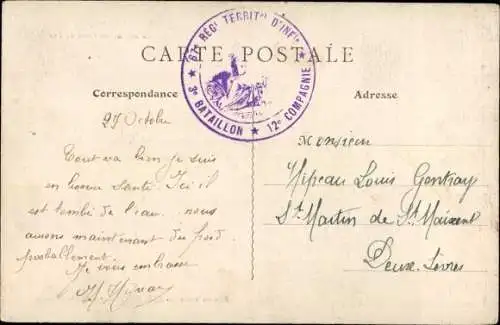 67e RÉGt TERRITal D'INFie
CARTE POSTALE
3e BATAILLON ★ 12e COMPAGNIE
Correspondance
Adresse
27 Octobre
Tout va bien je suis
en bonne Santé. Ici il
est tombé de l'eau. nous
aurons maintenant du froid
probablement.
Je vous embrasse
Monsieur
Hipeau Louis Gentray
St Martin de St Maixent
Deux-Sèvres